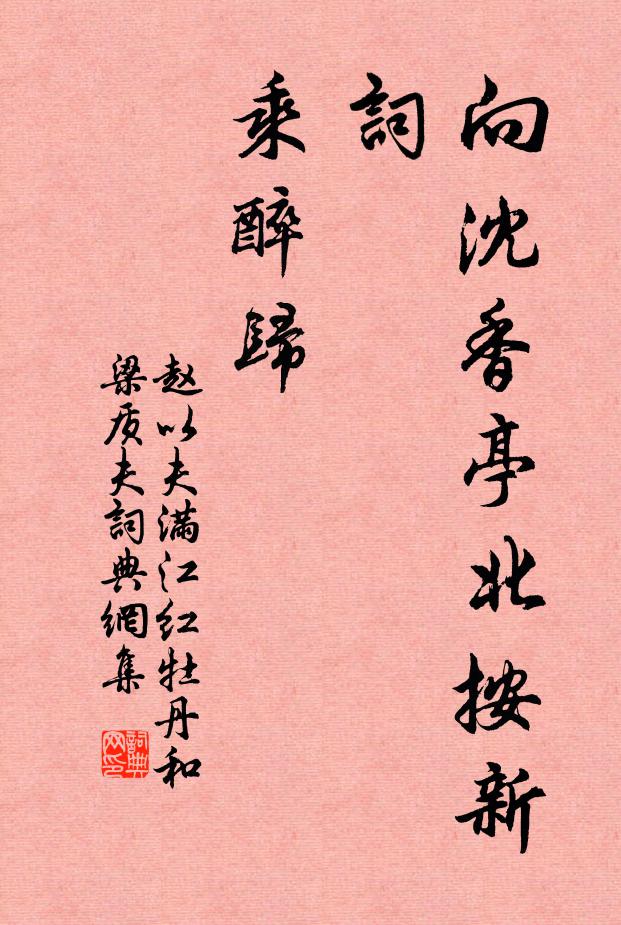 向沈香亭北按新
詞
乘醉歸
赵以夫滿江红牡丹和
梁质夫詞典網集
詞典
网印